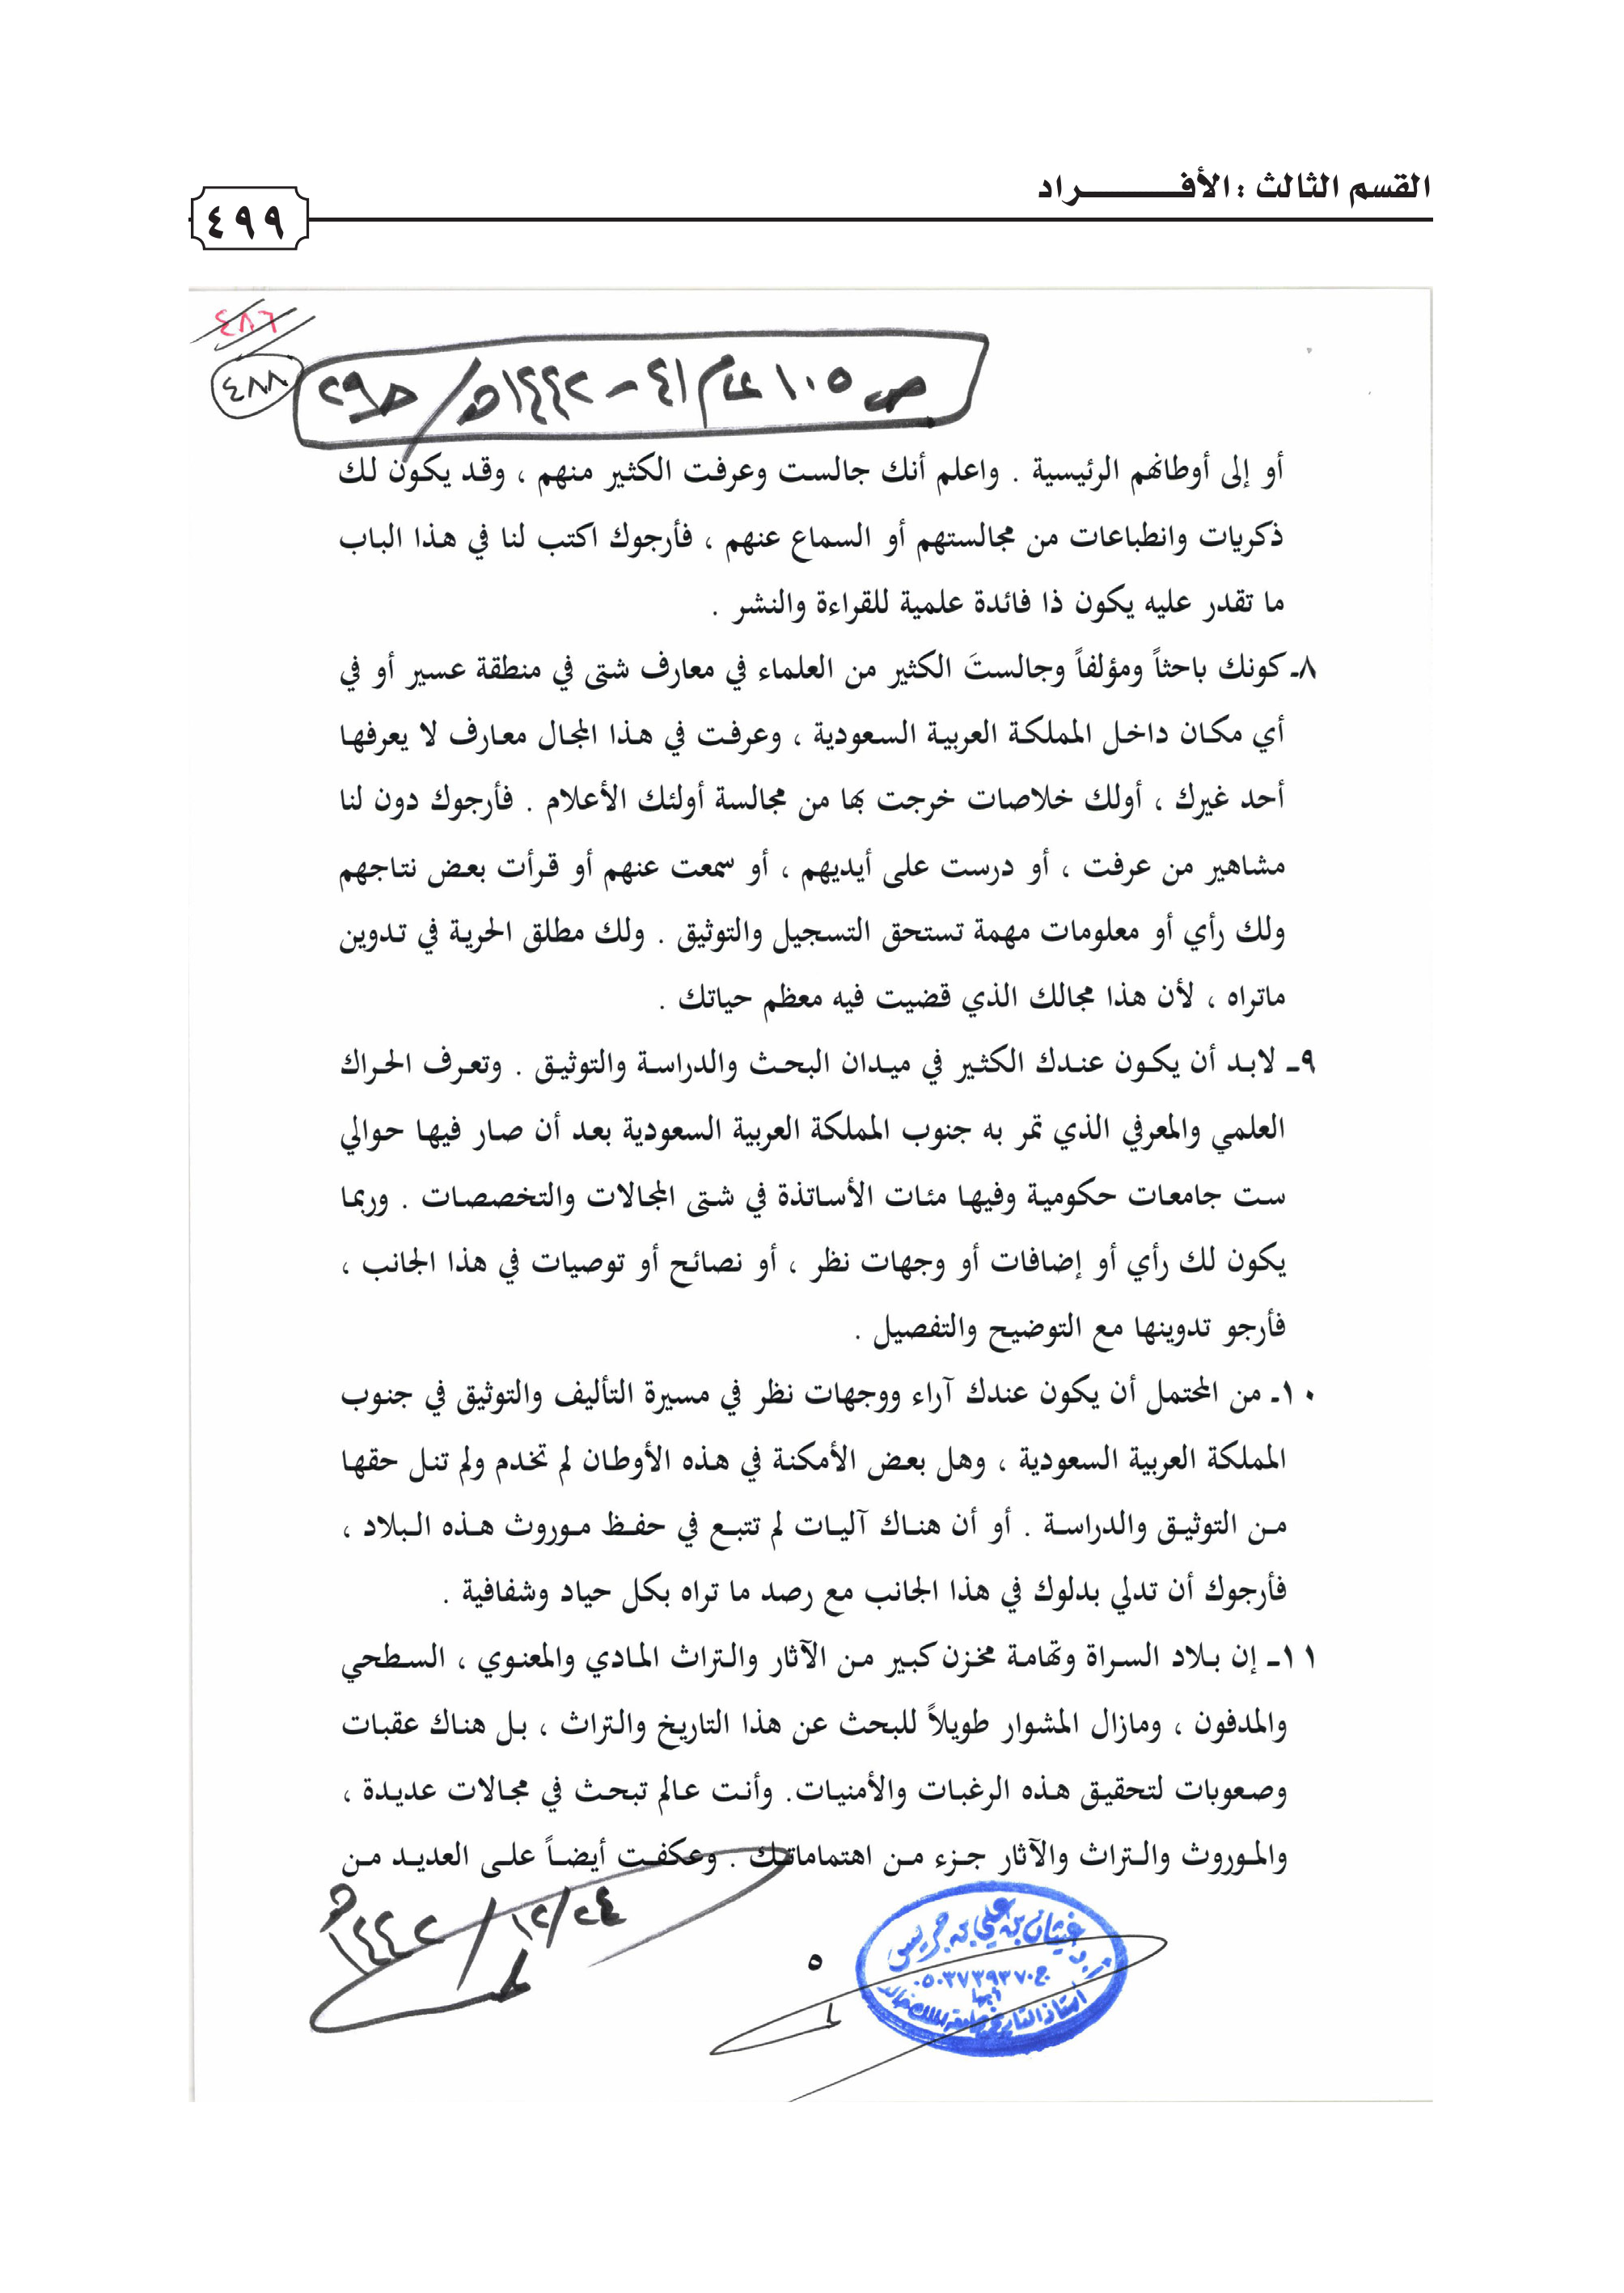 القسم الثالث : الأفـــــــــراد
٤٩٩
٤٨٦
٤٨٨
ص ١٠٥ عام ٤١ - ١٤٤٢هـ / ح ٢٩
أو إلى أوطانهم الرئيسية . واعلم أنك جالست وعرفت الكثير منهم ، وقد يكون لك
ذكريات وانطباعات من مجالستهم أو السماع عنهم ، فأرجوك اكتب لنا في هذا الباب
ما تقدر عليه يكون ذا فائدة علمية للقراءة والنشر .
٨ـ كونك باحثاً ومؤلفاً وجالستَ الكثير من العلماء في معارف شتى في منطقة عسير أو في
أي مكان داخل المملكة العربية السعودية ، وعرفت في هذا المجال معارف لا يعرفها
أحد غيرك ، أولك خلاصات خرجت بها من مجالسة أولئك الأعلام . فأرجوك دون لنا
مشاهير من عرفت ، أو درست على أيديهم ، أو سمعت عنهم أو قرأت بعض نتاجهم
ولك رأي أو معلومات مهمة تستحق التسجيل والتوثيق . ولك مطلق الحرية في تدوين
ماتراه ، لأن هذا مجالك الذي قضيت فيه معظم حياتك .
٩ـ لابد أن يكون عندك الكثير في ميدان البحث والدراسة والتوثيق . وتعرف الحراك
العلمي والمعرفي الذي تمر به جنوب المملكة العربية السعودية بعد أن صار فيها حوالي
ست جامعات حكومية وفيها مئات الأساتذة في شتى المجالات والتخصصات . وربما
يكون لك رأي أو إضافات أو وجهات نظر ، أو نصائح أو توصيات في هذا الجانب ،
فأرجو تدوينها مع التوضيح والتفصيل .
١٠ـ من المحتمل أن يكون عندك آراء ووجهات نظر في مسيرة التأليف والتوثيق في جنوب
المملكة العربية السعودية ، وهل بعض الأمكنة في هذه الأوطان لم تخدم ولم تنل حقها
من التوثيق والدراسة . أو أن هناك آليات لم تتبع في حفظ موروث هذه البلاد ،
فأرجوك أن تدلي بدلوك في هذا الجانب مع رصد ما تراه بكل حياد وشفافية .
١١ـ إن بلاد السراة وتهامة مخزن كبير من الآثار والتراث المادي والمعنوي ، السطحي
والمدفون ، ومازال المشوار طويلاً للبحث عن هذا التاريخ والتراث ، بل هناك عقبات
وصعوبات لتحقيق هذه الرغبات والأمنيات. وأنت عالم تبحث في مجالات عديدة ،
والموروث والتراث والآثار جزء من اهتماماتك . وعكفت أيضاً على العديد من
٢٤/ ١٢/ ١٤٤٢هـ
٥
غيثان بن علي بن جريس
ج ٠٥٠٣٧٣٩٣٧٠
أبها
أستاذ التاريخ بجامعة الملك خالد